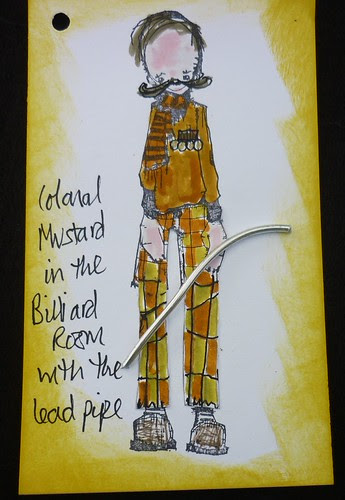 Colonal
Mustard
in the
Billiard
Room
with the
lead pipe